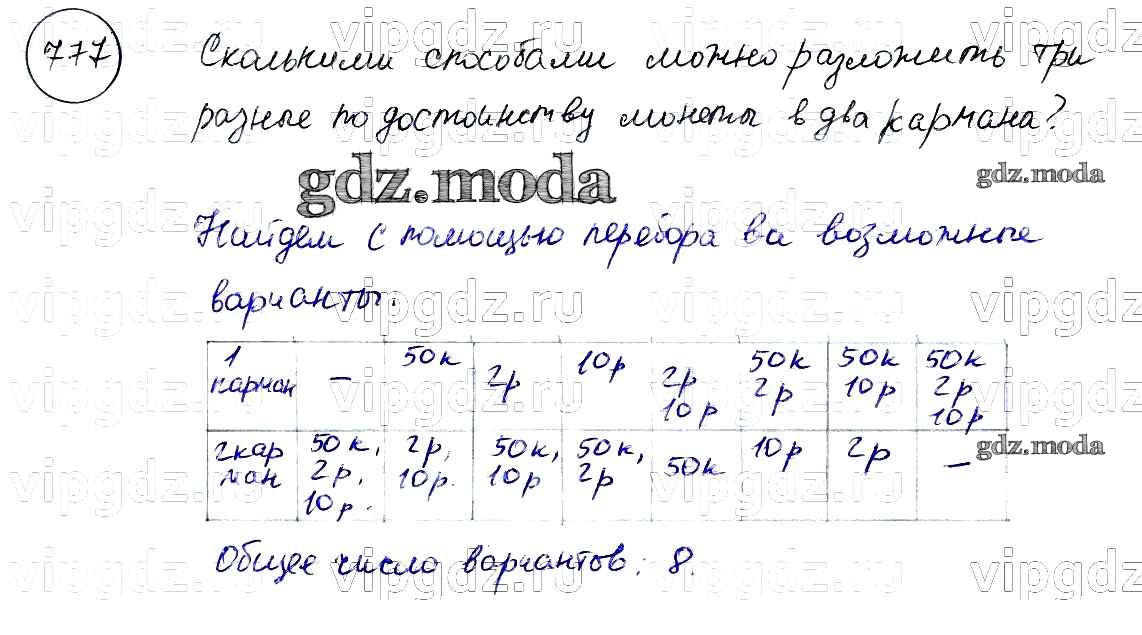 777 Сколькими способами можно разложить три
разные по достоинству монеты в два кармана?
gdz.moda gdz.moda
Найдем с помощью перебора все возможные
варианты:
1 карман | – | 50к | 2р | 10р | 2р 10р | 50к 2р | 50к 10р | 50к 2р 10р
2 карман | 50к, 2р, 10р. | 2р, 10р. | 50к, 10р | 50к, 2р | 50к | 10р | 2р | –
gdz.moda
Общее число вариантов: 8.
vipgdz.ru